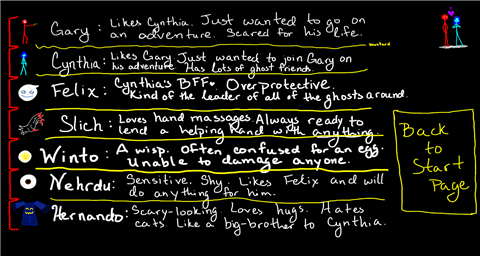 Gary : Likes Cynthia. Just wanted to go on
an adventure. Scared for his life.
mustard
Cynthia: Likes Gary. Just wanted to join Gary on
his adventure. Has lots of ghost friends.
Felix: Cynthia's BFF. Overprotective.
Kind of the leader of all of the ghosts around.
Slich : Loves hand massages. Always ready to
lend a helping hand with anything.
Winto: A wisp. Often confused for an egg.
Unable to damage anyone.
Nehrdu: Sensitive. Shy. Likes Felix and will
do anything for him.
Hernando: Scary-looking. Loves hugs. Hates
cats. Like a big-brother to Cynthia.
Back
to
Start
Page